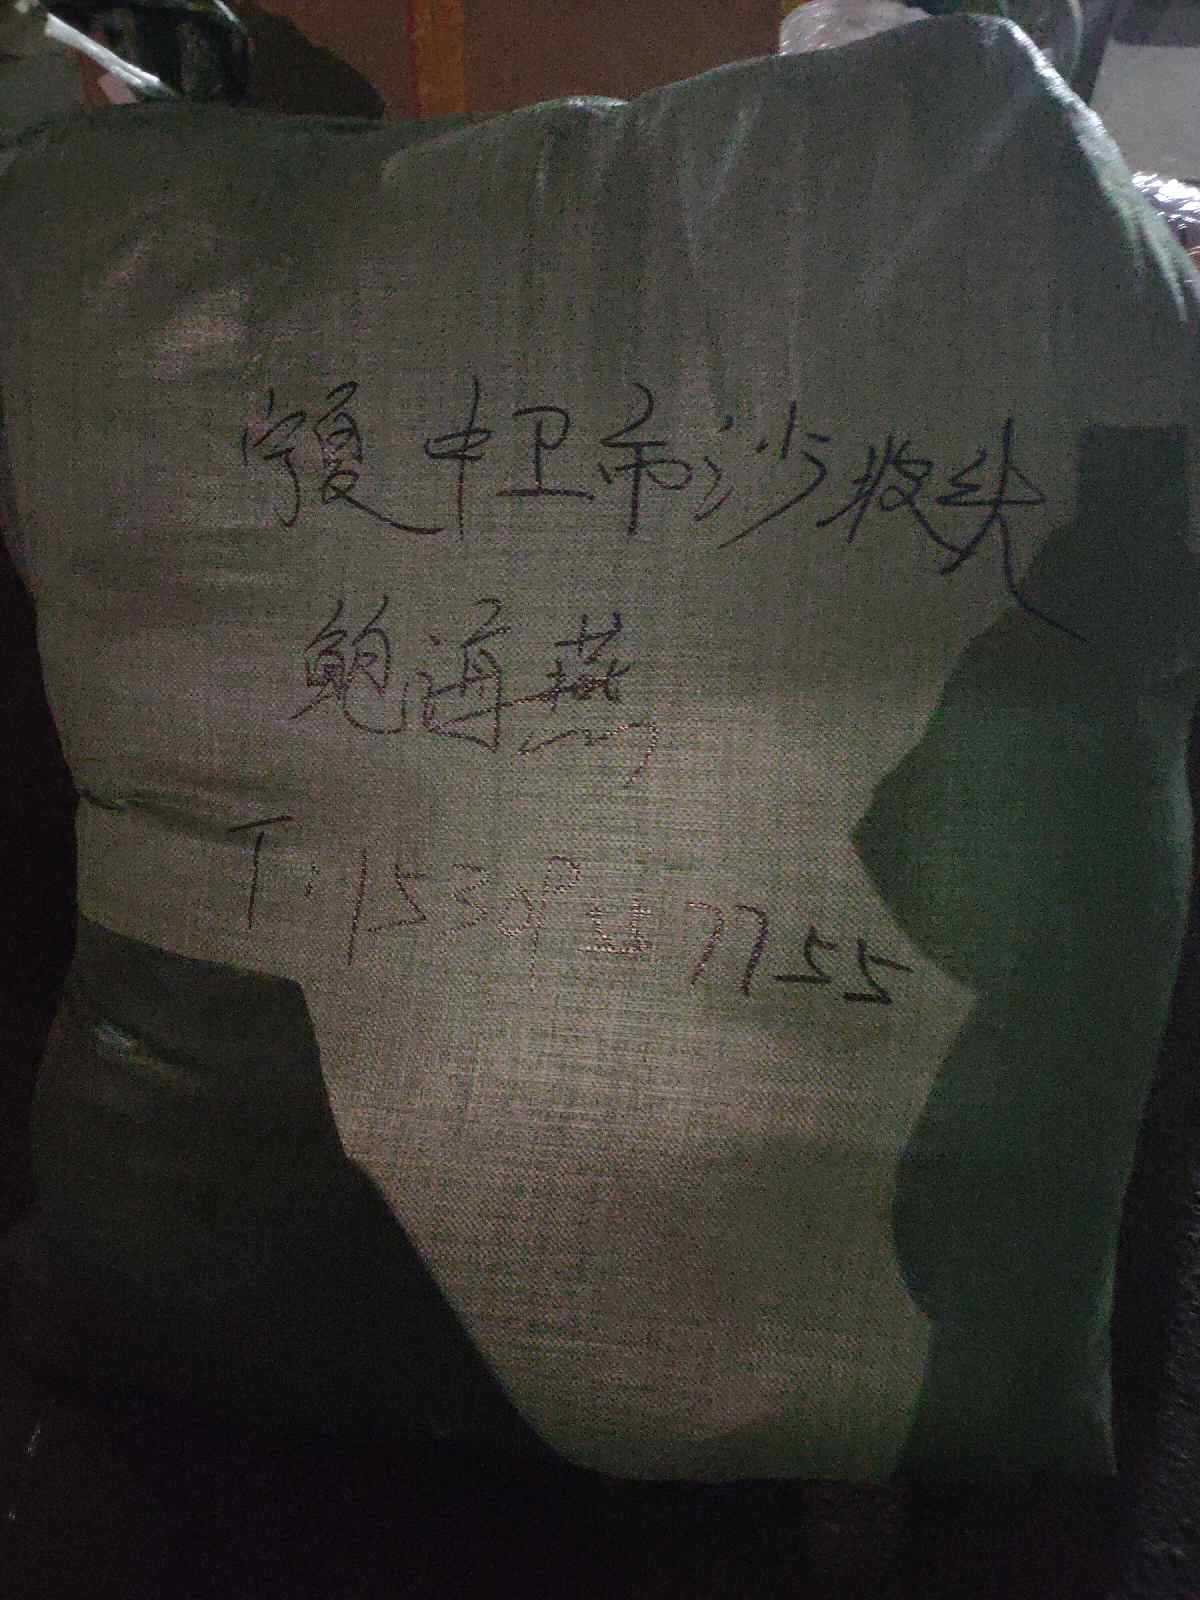 宁夏中卫市沙坡头
鲍海燕
T:1530
7755